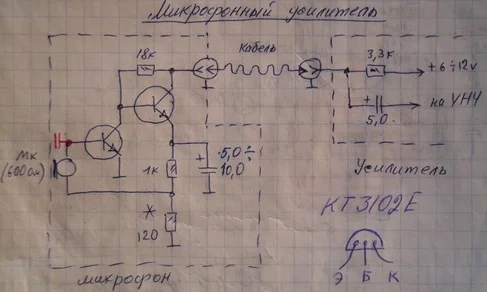 Микрофонный усилитель
18к
кабель
3,3к
+6÷12v
на УНЧ
+
5,0
Мк
(600ом)
1к
+
5,0÷
10,0
*
120
микрофон
Усилитель
КТ3102Е
Э Б К